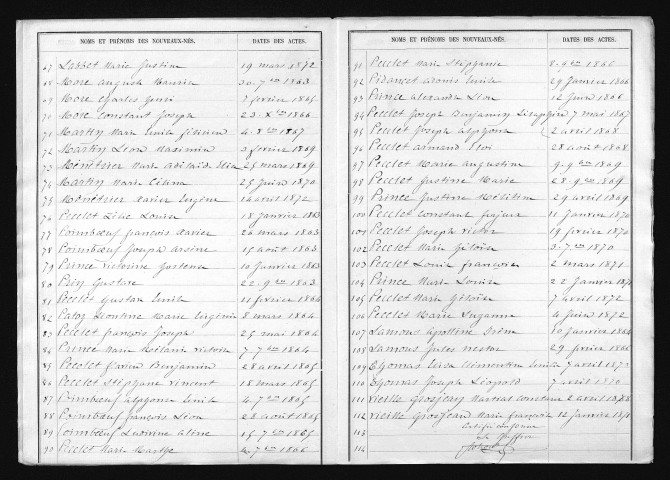 NOMS ET PRÉNOMS DES NOUVEAUX-NÉS. DATES DES ACTES.
67 Labbet Marie Justine 19 mars 1872
68 More august Maurice 30 7bre 1863
69 More Charles 7 février 1865
70 More Constant Joseph 23 Xbre 1866
71 Martin Marie Emile 4 8bre 1867
72 Martin Léon Maximin 3 février 1869
73 Ménétrier Marie adélaïde 25 mars 1869
74 Martin Marie Céline 25 Juin 1870
75 Ménétrier Xavier Eugène 14 avril 1872
76 Peclet Louise 18 Janvier 1863
77 Poimboeuf françois Xavier 26 mars 1863
78 Poimboeuf Joseph arsène 15 août 1863
79 Prince victorine 10 Janvier 1863
80 Gustave 22 9bre 1863
81 Peclet Gustave Emile 11 février 1864
82 Léontine Marie Virginie 8 mars 1864
83 Peclet françois Joseph 25 mai 1864
84 Prince Marie Mélanie victoire 7 7bre 1864
85 Peclet Benjamin 28 avril 1865
86 Peclet Stéphane vincent 18 mars 1865
87 Poimboeuf alphonse Emile 4 7bre 1865
88 Poimboeuf françois Léon 28 août 1865
89 Poimboeuf Ludivine aline 15 7bre 1865
90 Peclet Marie Marthe 4 7bre 1866
NOMS ET PRÉNOMS DES NOUVEAUX-NÉS. DATES DES ACTES.
91 Peclet Marie Stéphanie 8 9bre 1866
92 Pidancet Emile 29 Janvier 1866
93 Prince alexandre Léon 12 Juin 1866
94 Peclet Joseph Benjamin 7 mai 1867
95 Peclet Joseph alphonse 2 avril 1868
96 Peclet armand Eloi 28 août 1868
97 Peclet Marie augustine 9 9bre 1869
98 Peclet Justine Marie 28 9bre 1869
99 Prince Justine 29 avril 1869
100 Peclet Constant 11 Janvier 1870
101 Peclet Joseph victor 19 février 1870
102 Peclet Marie 3 7bre 1870
103 Peclet Louis françois 2 mars 1871
104 Prince Marie Louise 22 Janvier 1871
105 Peclet Marie 7 avril 1872
106 Peclet Marie Suzanne 4 Juin 1872
107 Lamous apolline 10 Janvier 1864
108 Lamous Jules nestor 29 février 1866
109 Thomas Elisa Clémentine Emilie 7 avril 1872
110 Thomas Joseph Léopold 7 avril 1870
111 Vieille Grosjean Martial Constant 2 avril 1878
112 Vieille Grosjean Marie françoise 12 Janvier
113 Certifié conforme
114 le Greffier